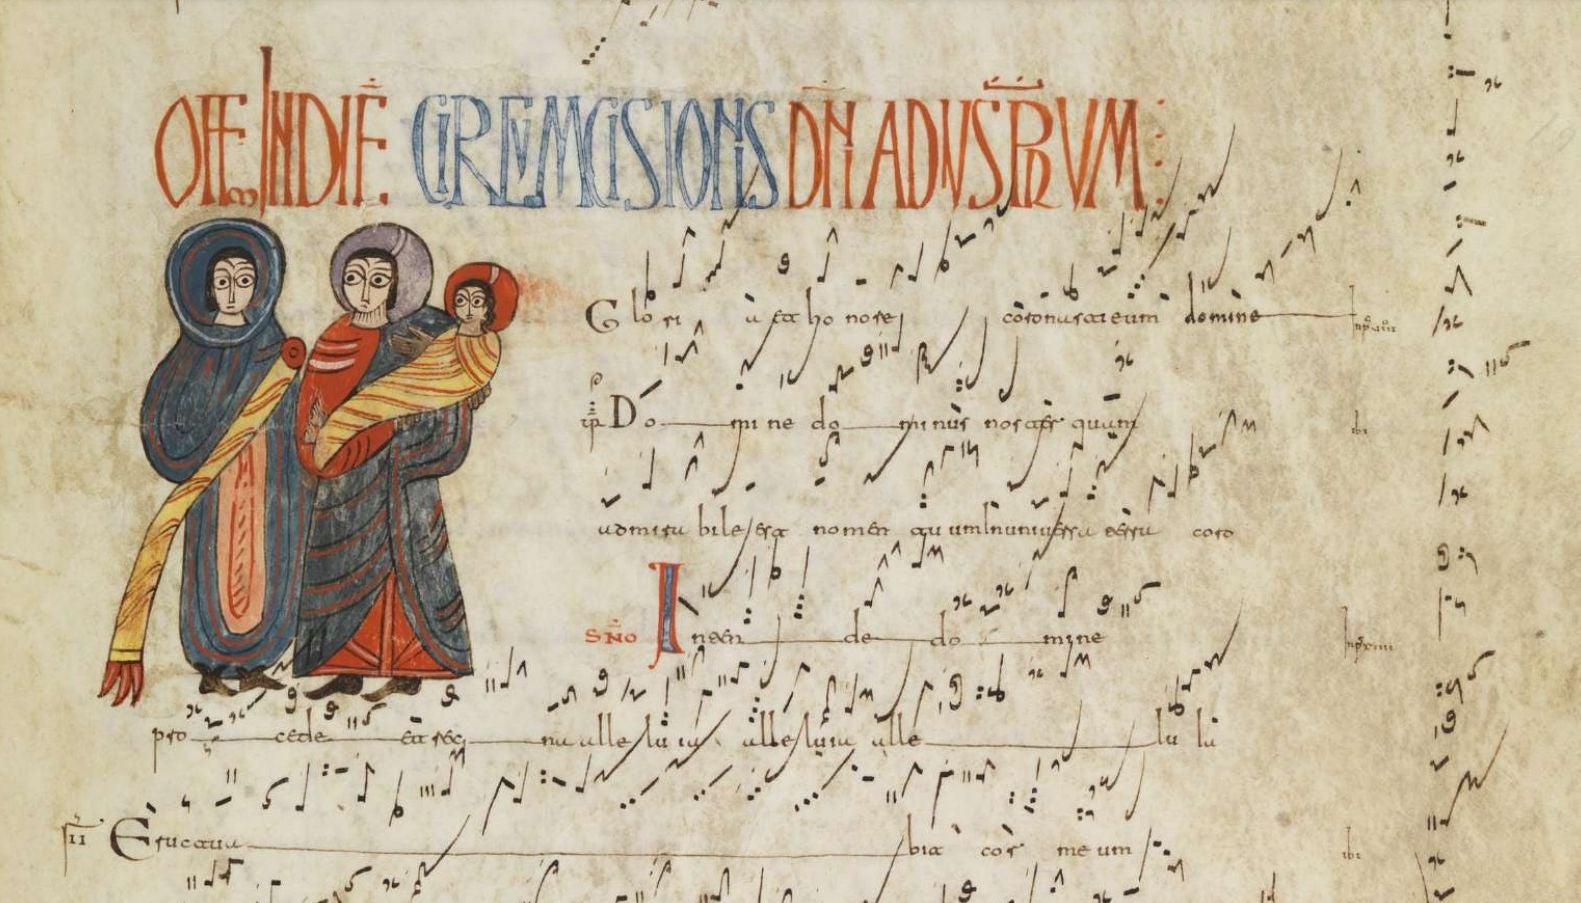 OFFM IN DIE CIRCUMCISIONIS DNI AD VSPRUM
Glori a et ho nore coronasti eum domine
Do mi ne do mi nus noster quam ibi
admira bile est nomen tuum In universa terra coro
SNO In ten de do mine
pro cede et reg na alleluia alleluia alle lu ia
II Eructava bit cor me um ibi